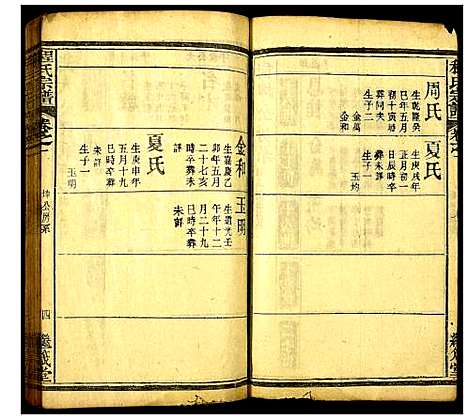 程氏宗譜
周氏
生乾隆癸
巳年五月
初十寅時
葬同夫
生子二
金萬
金和
夏氏
生庚戌年
正月初一
日辰時卒
葬未詳
生子一
玉均
金和
生嘉慶乙
卯年五月
二十七亥
時卒葬未
詳
夏氏
生庚申年
五月十九
巳時卒葬
未詳
生子一
玉明
玉明
生道光壬
午年十二
月二十九
巳時卒葬
未詳
程氏宗譜
卷之
坤公房系
四
繼義堂